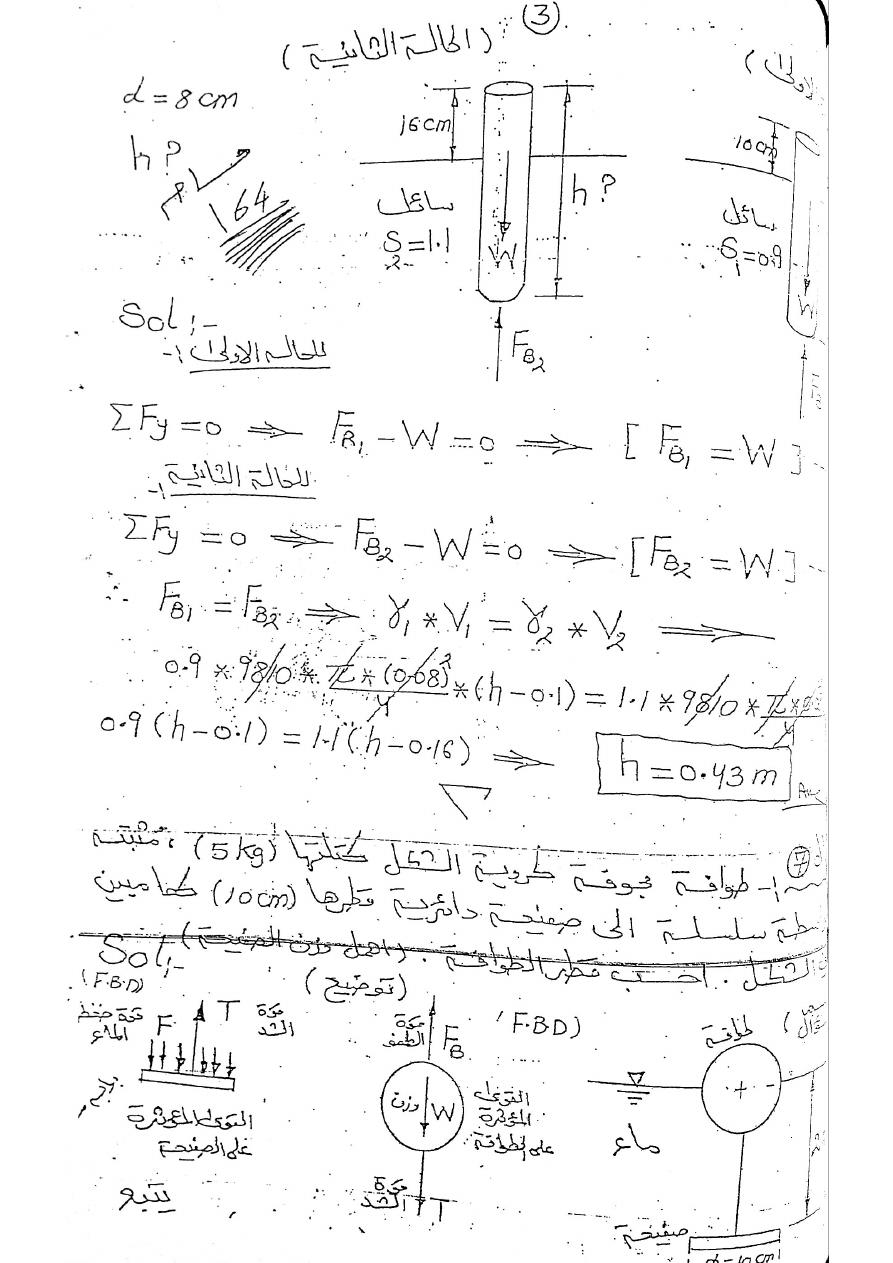 3
(الحالة الثانية)
d = 8 cm
h ?
64
16 cm
h ?
سائل
S2 = 1.1
W
FB2
10 cm
سائل
S1 = 0.9
W
Sol :-
للحالة الاولى :-
ΣFy = 0 ⇒ FB1 - W = 0 ⇒ [ FB1 = W ]
للحالة الثانية :-
ΣFy = 0 ⇒ FB2 - W = 0 ⇒ [ FB2 = W ]
∴ FB1 = FB2 ⇒ γ1 * V1 = γ2 * V2 ⇒
0.9 * 9810 * π * (0.08)² / 4 * (h - 0.1) = 1.1 * 9810 * π *
0.9 (h - 0.1) = 1.1 (h - 0.16) ⇒ h = 0.43 m
Ans
7
طوافة مجوفة كروية الشكل كتلتها (5 kg) ، مثبتة
سلسلة الى صفيحة دائرية قطرها (10 cm) كما مبين
الشكل . احسب قطر الطوافة . (اهمل وزن الصفيحة)
Sol :-
(F.B.D)
(توضيح)
(F.B.D)
قوة ضغط المائع
F
T
قوة الشد
القوى المؤثرة
على الصفيحة
يتبع
قوة الطفو
FB
وزن
W
القوى
المؤثرة
على الطوافة
قوة الشد
T
طوافة
+
ماء
صفيحة
d = 10 cm